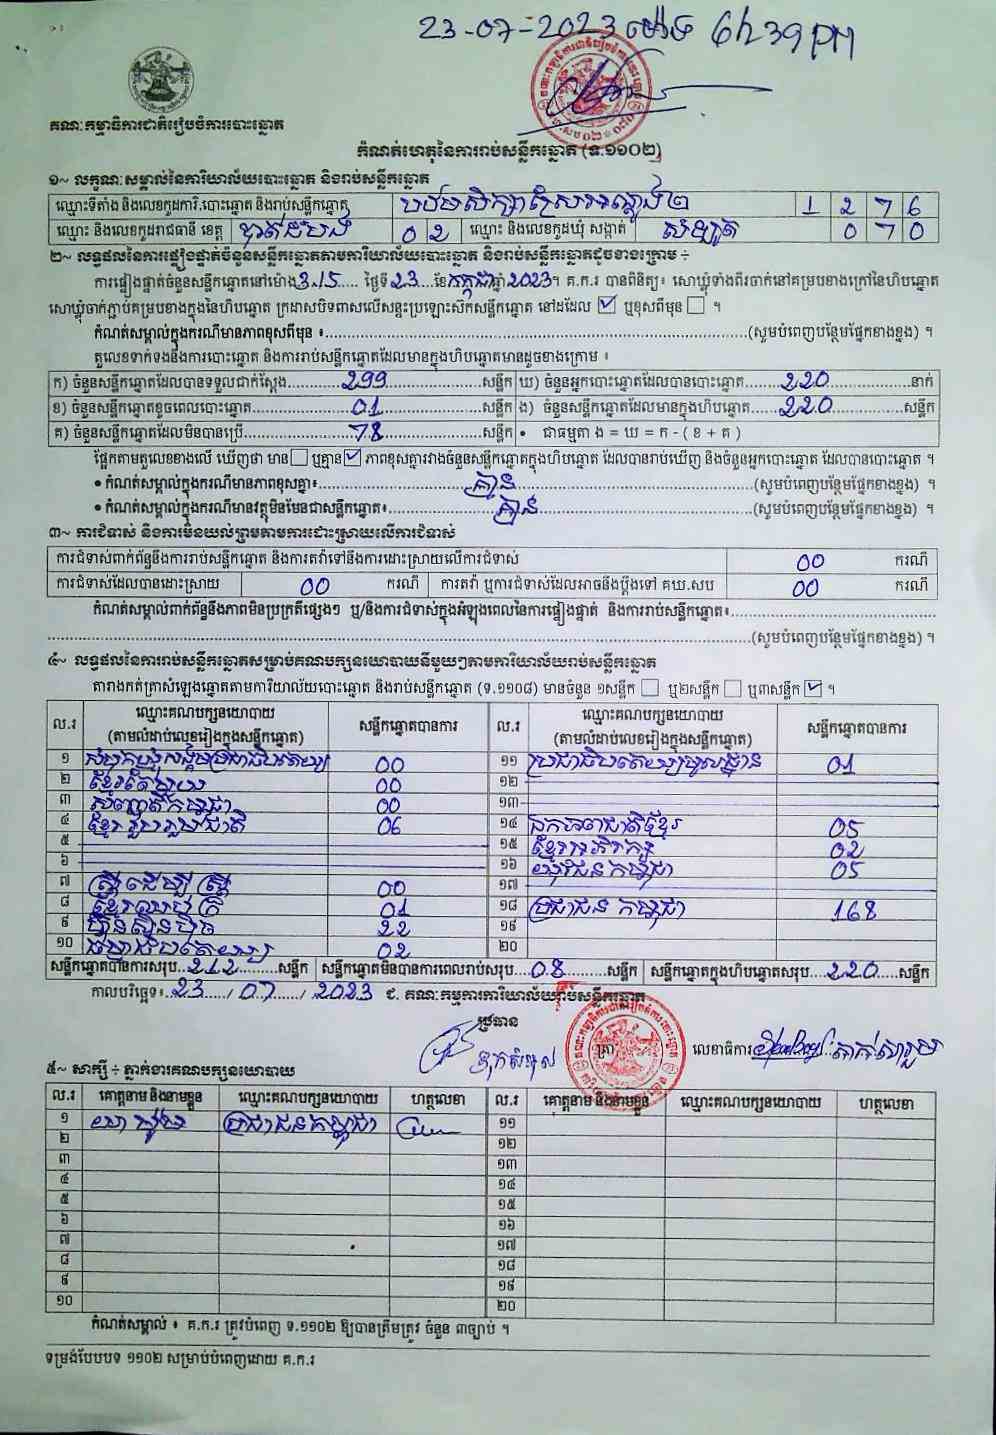 23-07-2023 ម៉ោង 6h39PM
គណៈកម្មាធិការជាតិរៀបចំការបោះឆ្នោត
កំណត់ហេតុនៃការរាប់សន្លឹកឆ្នោត (ទ.១១០២)
១~ លក្ខណៈសម្គាល់នៃការិយាល័យបោះឆ្នោត និងរាប់សន្លឹកឆ្នោត
ឈ្មោះទីតាំង និងលេខកូដការិ.បោះឆ្នោត និងរាប់សន្លឹកឆ្នោត បឋមសិក្សាស្រែអណ្តូង២ 1 2 7 6
ឈ្មោះ និងលេខកូដរាជធានី ខេត្ត បាត់ដំបង 0 2 ឈ្មោះ និងលេខកូដឃុំ សង្កាត់ សំឡូត 0 7 0
២~ លទ្ធផលនៃការផ្ទៀងផ្ទាត់ចំនួនសន្លឹកឆ្នោតតាមការិយាល័យបោះឆ្នោត និងរាប់សន្លឹកឆ្នោតដូចខាងក្រោម ÷
ការផ្ទៀងផ្ទាត់ចំនួនសន្លឹកឆ្នោតនៅម៉ោង 3:15 ថ្ងៃទី 23 ខែ កក្កដា ឆ្នាំ 2023 ។ គ.ក.រ បានពិនិត្យ៖ សោឃ្លុំទាំងពីរចាក់នៅគម្របខាងក្រៅនៃហិបឆ្នោត
សោឃ្លុំចាក់ភ្ជាប់គម្របខាងក្នុងនៃហិបឆ្នោត ក្រដាសបិទពាសលើសន្ទះប្រឡោះស៊កសន្លឹកឆ្នោត នៅដដែល ☑ ឬខុសពីមុន ☐ ។
កំណត់សម្គាល់ក្នុងករណីមានភាពខុសពីមុន ៖ (សូមបំពេញបន្ថែមផ្នែកខាងខ្នង) ។
តួលេខទាក់ទងនឹងការបោះឆ្នោត និងការរាប់សន្លឹកឆ្នោតដែលមានក្នុងហិបឆ្នោតមានដូចខាងក្រោម ៖
ក) ចំនួនសន្លឹកឆ្នោតដែលបានទទួលជាក់ស្តែង 299 សន្លឹក ឃ) ចំនួនអ្នកបោះឆ្នោតដែលបានបោះឆ្នោត 220 នាក់
ខ) ចំនួនសន្លឹកឆ្នោតខូចពេលបោះឆ្នោត 01 សន្លឹក ង) ចំនួនសន្លឹកឆ្នោតដែលមានក្នុងហិបឆ្នោត 220 សន្លឹក
គ) ចំនួនសន្លឹកឆ្នោតដែលមិនបានប្រើ 78 សន្លឹក • ជាធម្មតា ង = ឃ = ក - ( ខ + គ )
ផ្អែកតាមតួលេខខាងលើ ឃើញថា មាន ☐ ឬគ្មាន ☑ ភាពខុសគ្នារវាងចំនួនសន្លឹកឆ្នោតក្នុងហិបឆ្នោត ដែលបានរាប់ឃើញ និងចំនួនអ្នកបោះឆ្នោត ដែលបានបោះឆ្នោត ។
• កំណត់សម្គាល់ក្នុងករណីមានភាពខុសគ្នា៖ គ្មាន (សូមបំពេញបន្ថែមផ្នែកខាងខ្នង) ។
• កំណត់សម្គាល់ក្នុងករណីមានវត្ថុមិនមែនជាសន្លឹកឆ្នោត៖ គ្មាន (សូមបំពេញបន្ថែមផ្នែកខាងខ្នង) ។
៣~ ការជំទាស់ និងការមិនយល់ព្រមតាមការដោះស្រាយលើការជំទាស់
ការជំទាស់ពាក់ព័ន្ធនឹងការរាប់សន្លឹកឆ្នោត និងការតវ៉ាទៅនឹងការដោះស្រាយលើការជំទាស់ 00 ករណី
ការជំទាស់ដែលបានដោះស្រាយ 00 ករណី ការតវ៉ា ឬការជំទាស់ដែលអាចនឹងប្តឹងទៅ គឃ.សប 00 ករណី
កំណត់សម្គាល់ពាក់ព័ន្ធនឹងភាពមិនប្រក្រតីផ្សេងៗ ឬ/និងការជំទាស់ក្នុងអំឡុងពេលនៃការផ្ទៀងផ្ទាត់ និងការរាប់សន្លឹកឆ្នោត៖
(សូមបំពេញបន្ថែមផ្នែកខាងខ្នង) ។
៤~ លទ្ធផលនៃការរាប់សន្លឹកឆ្នោតសម្រាប់គណបក្សនយោបាយនីមួយៗតាមការិយាល័យរាប់សន្លឹកឆ្នោត
តារាងកត់ត្រាសំឡេងឆ្នោតតាមការិយាល័យបោះឆ្នោត និងរាប់សន្លឹកឆ្នោត (ទ.១១០៨) មានចំនួន ១សន្លឹក ☐ ឬ២សន្លឹក ☐ ឬ៣សន្លឹក ☑ ។
ល.រ ឈ្មោះគណបក្សនយោបាយ (តាមលំដាប់លេខរៀងក្នុងសន្លឹកឆ្នោត) សន្លឹកឆ្នោតបានការ ល.រ ឈ្មោះគណបក្សនយោបាយ (តាមលំដាប់លេខរៀងក្នុងសន្លឹកឆ្នោត) សន្លឹកឆ្នោតបានការ
១ សំបុកឃ្មុំសង្គមប្រជាធិបតេយ្យ 00 ១១ ប្រជាធិបតេយ្យមូលដ្ឋាន 01
២ ខ្មែរតែមួយ 00 ១២
៣ សញ្ជាតិកម្ពុជា 00 ១៣
៤ ខ្មែររួបរួមជាតិ 06 ១៤ ឯកភាពជាតិខ្មែរ 05
៥ ១៥ ខ្មែរអភិរក្ស 02
៦ ១៦ យុវជនកម្ពុជា 05
៧ ស្ត្រីដើម្បីស្ត្រី 00 ១៧
៨ ខ្មែរឈប់ក្រ 01 ១៨ ប្រជាជនកម្ពុជា 168
៩ ហ៊្វុនស៊ិនប៉ិច 22 ១៩
១០ ធម្មាធិបតេយ្យ 02 ២០
សន្លឹកឆ្នោតបានការសរុប 212 សន្លឹក សន្លឹកឆ្នោតមិនបានការពេលរាប់សរុប 08 សន្លឹក សន្លឹកឆ្នោតក្នុងហិបឆ្នោតសរុប 220 សន្លឹក
កាលបរិច្ឆេទ៖ 23 / 07 / 2023 ជ. គណៈកម្មការការិយាល័យរាប់សន្លឹកឆ្នោត
ប្រធាន
ត្រា លេខាធិការ
៥~ សាក្សី ÷ ភ្នាក់ងារគណបក្សនយោបាយ
ល.រ គោត្តនាម និងនាមខ្លួន ឈ្មោះគណបក្សនយោបាយ ហត្ថលេខា ល.រ គោត្តនាម និងនាមខ្លួន ឈ្មោះគណបក្សនយោបាយ ហត្ថលេខា
១ ប្រជាជនកម្ពុជា ១១
២ ១២
៣ ១៣
៤ ១៤
៥ ១៥
៦ ១៦
៧ ១៧
៨ ១៨
៩ ១៩
១០ ២០
កំណត់សម្គាល់ ៖ គ.ក.រ ត្រូវបំពេញ ទ.១១០២ ឱ្យបានត្រឹមត្រូវ ចំនួន ៣ច្បាប់ ។
ទម្រង់បែបបទ ១១០២ សម្រាប់បំពេញដោយ គ.ក.រ